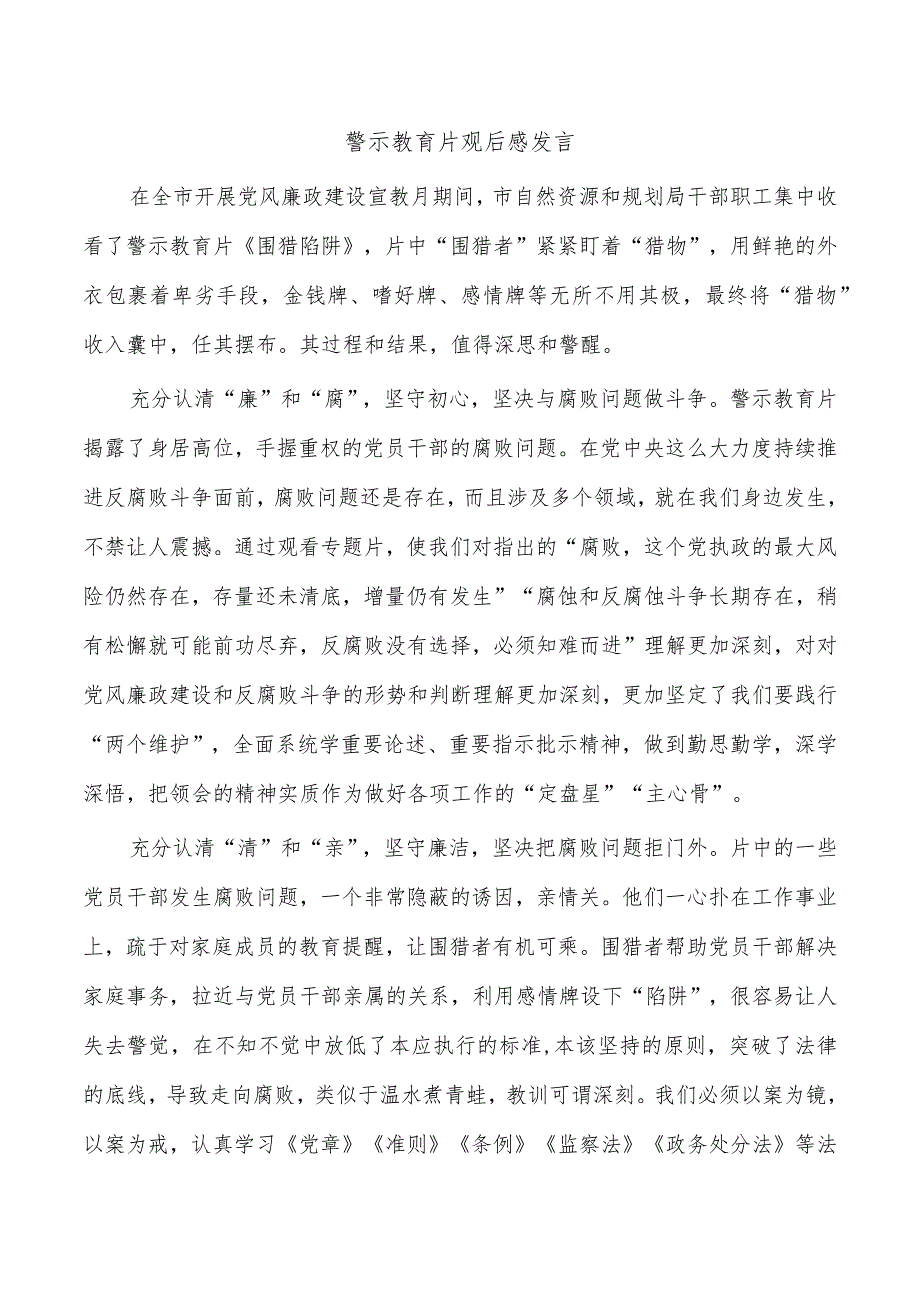 警示教育片观后感发言
在全市开展党风廉政建设宣教月期间，市自然资源和规划局干部职工集中收
看了警示教育片《围猎陷阱》，片中“围猎者”紧紧盯着“猎物”，用鲜艳的外
衣包裹着卑劣手段，金钱牌、嗜好牌、感情牌等无所不用其极，最终将“猎物”
收入囊中，任其摆布。其过程和结果，值得深思和警醒。
充分认清“廉”和“腐”，坚守初心，坚决与腐败问题做斗争。警示教育片
揭露了身居高位，手握重权的党员干部的腐败问题。在党中央这么大力度持续推
进反腐败斗争面前，腐败问题还是存在，而且涉及多个领域，就在我们身边发生，
不禁让人震撼。通过观看专题片，使我们对指出的“腐败，这个党执政的最大风
险仍然存在，存量还未清底，增量仍有发生”“腐蚀和反腐蚀斗争长期存在，稍
有松懈就可能前功尽弃，反腐败没有选择，必须知难而进”理解更加深刻，对对
党风廉政建设和反腐败斗争的形势和判断理解更加深刻，更加坚定了我们要践行
“两个维护”，全面系统学重要论述、重要指示批示精神，做到勤思勤学，深学
深悟，把领会的精神实质作为做好各项工作的“定盘星”“主心骨”。
充分认清“清”和“亲”，坚守廉洁，坚决把腐败问题拒门外。片中的一些
党员干部发生腐败问题，一个非常隐蔽的诱因，亲情关。他们一心扑在工作事业
上，疏于对家庭成员的教育提醒，让围猎者有机可乘。围猎者帮助党员干部解决
家庭事务，拉近与党员干部亲属的关系，利用感情牌设下“陷阱”，很容易让人
失去警觉，在不知不觉中放低了本应执行的标准,本该坚持的原则，突破了法律
的底线，导致走向腐败，类似于温水煮青蛙，教训可谓深刻。我们必须以案为镜，
以案为戒，认真学习《党章》《准则》《条例》《监察法》《政务处分法》等法